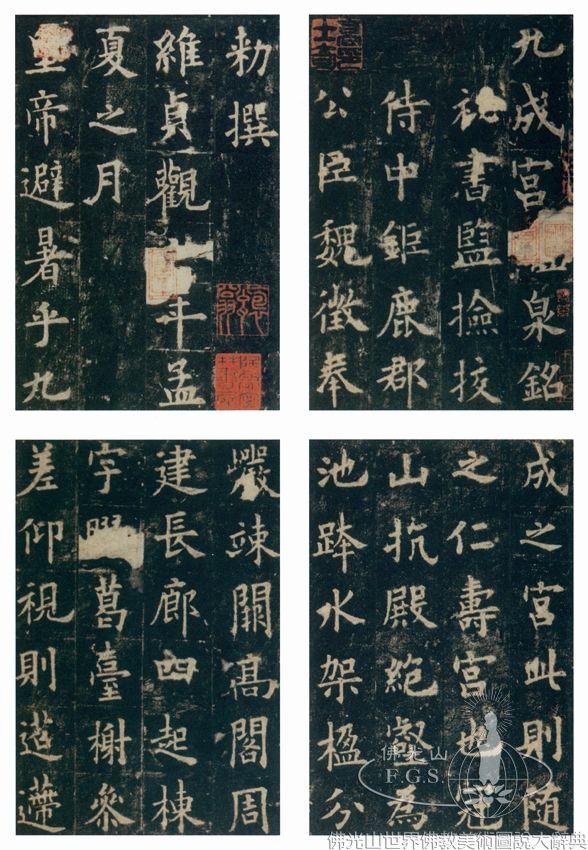 九成宮泉銘
祕書監撿挍
侍中鉅鹿郡
公臣魏徵奉
勑撰
維貞觀年孟
夏之月
皇帝避暑乎九
成之宮此則随
之仁壽宮也冠
山抗殿絶壑為
池跨水架楹分
巖竦闕高閣周
建長廊四起棟
宇葛臺榭參
差仰視則迢遰
佛光山
FGS
佛光山世界佛教美術圖說大辭典